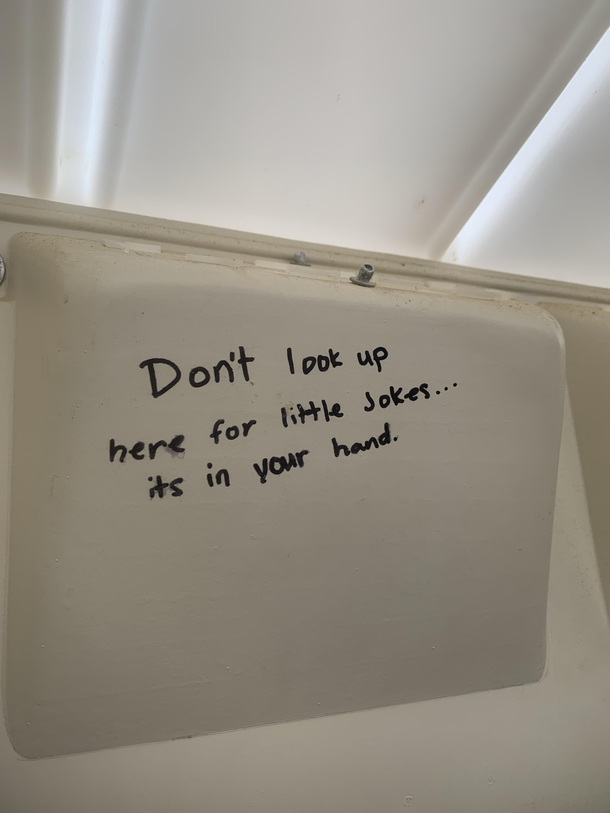 Don't look up
here for little Jokes...
its in your hand.